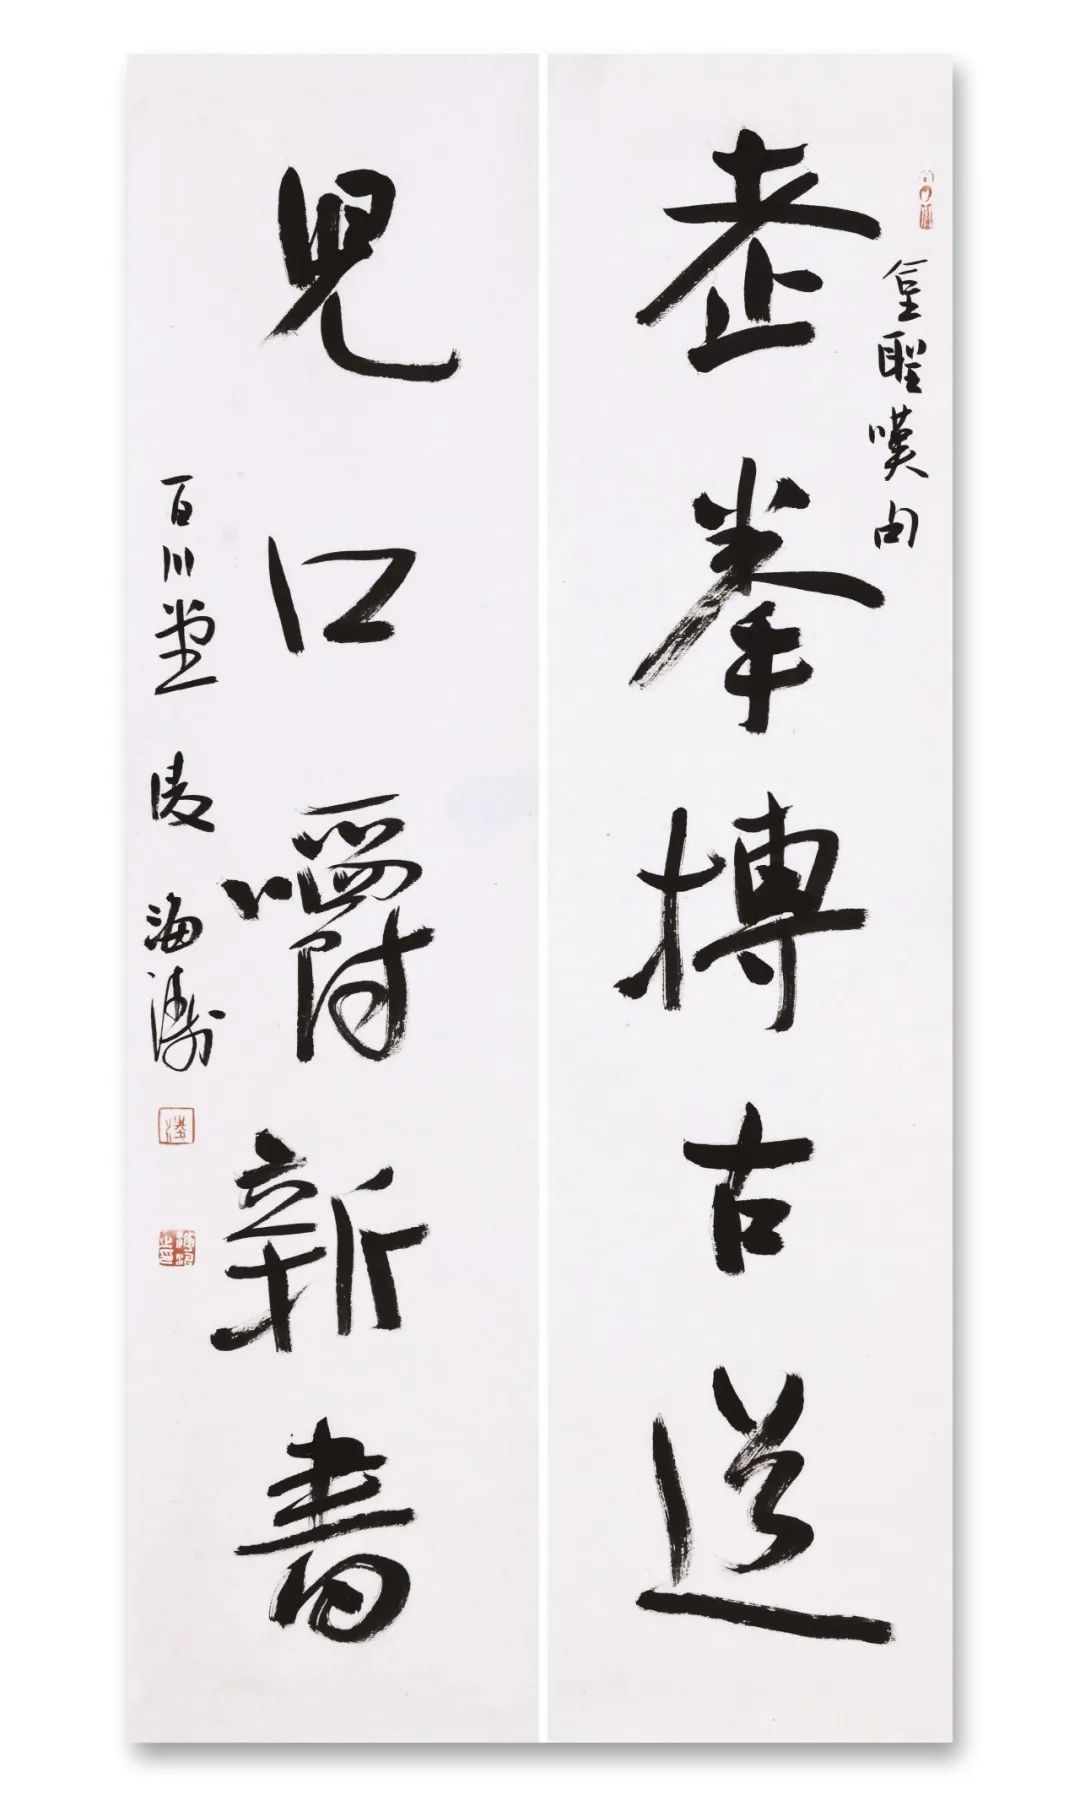 金聖嘆句
老拳搏古道
兒口嚼新書
百川堂 凌海濤